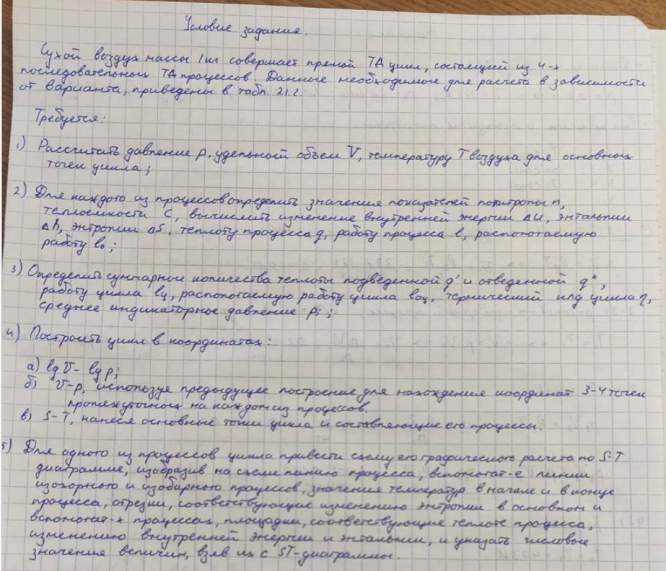 Условие задания.
Сухой воздух массы 1 кг совершает прямой ТД цикл, состоящий из 4-х
последовательных ТД процессов. Данные необходимые для расчета в зависимости
от Варианта, приведены в табл. 21.2.
Требуется:
1) Рассчитать давление p, удельный объем V, температуру T воздуха для основных
точек цикла;
2) Для каждого из процессов определить значения показателей политропы n,
теплоемкости C, вычислить изменение внутренней энергии ΔU, энтальпии
Δh, энтропии ΔS, теплоту процесса q, работу процесса l, располагаемую
работу l₀;
3) Определить суммарные количества теплоты подведенной q' и отведенной q",
работу цикла lц, располагаемую работу цикла l₀ц, термический кпд цикла η,
среднее индикаторное давление Pi;
4) Построить цикл в координатах:
а) lg V - lg p;
б) V-p, используя предыдущее построение для нахождения координат 3-4 точек
промежуточных на каждом из процессов.
в) S-T, нанеся основные точки цикла и составляющие его процессы.
5) Для одного из процессов цикла привести схему его графического расчета по S-T
диаграмме, изобразив на схеме линию процесса, вспомогат-е линии
изохорного и изобарного процессов, значения температур в начале и в конце
процесса, отрезки, соответствующие изменению энтропии в основном и
вспомогат-х процессах, площадки, соответствующие теплоте процесса,
изменению внутренней энергии и энтальпии, и указать числовые
значения величин, взяв их с ST-диаграммы.